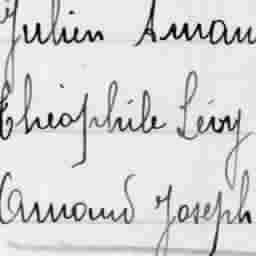 Julien Aman
Théophile Lévy
Arnaud Joseph